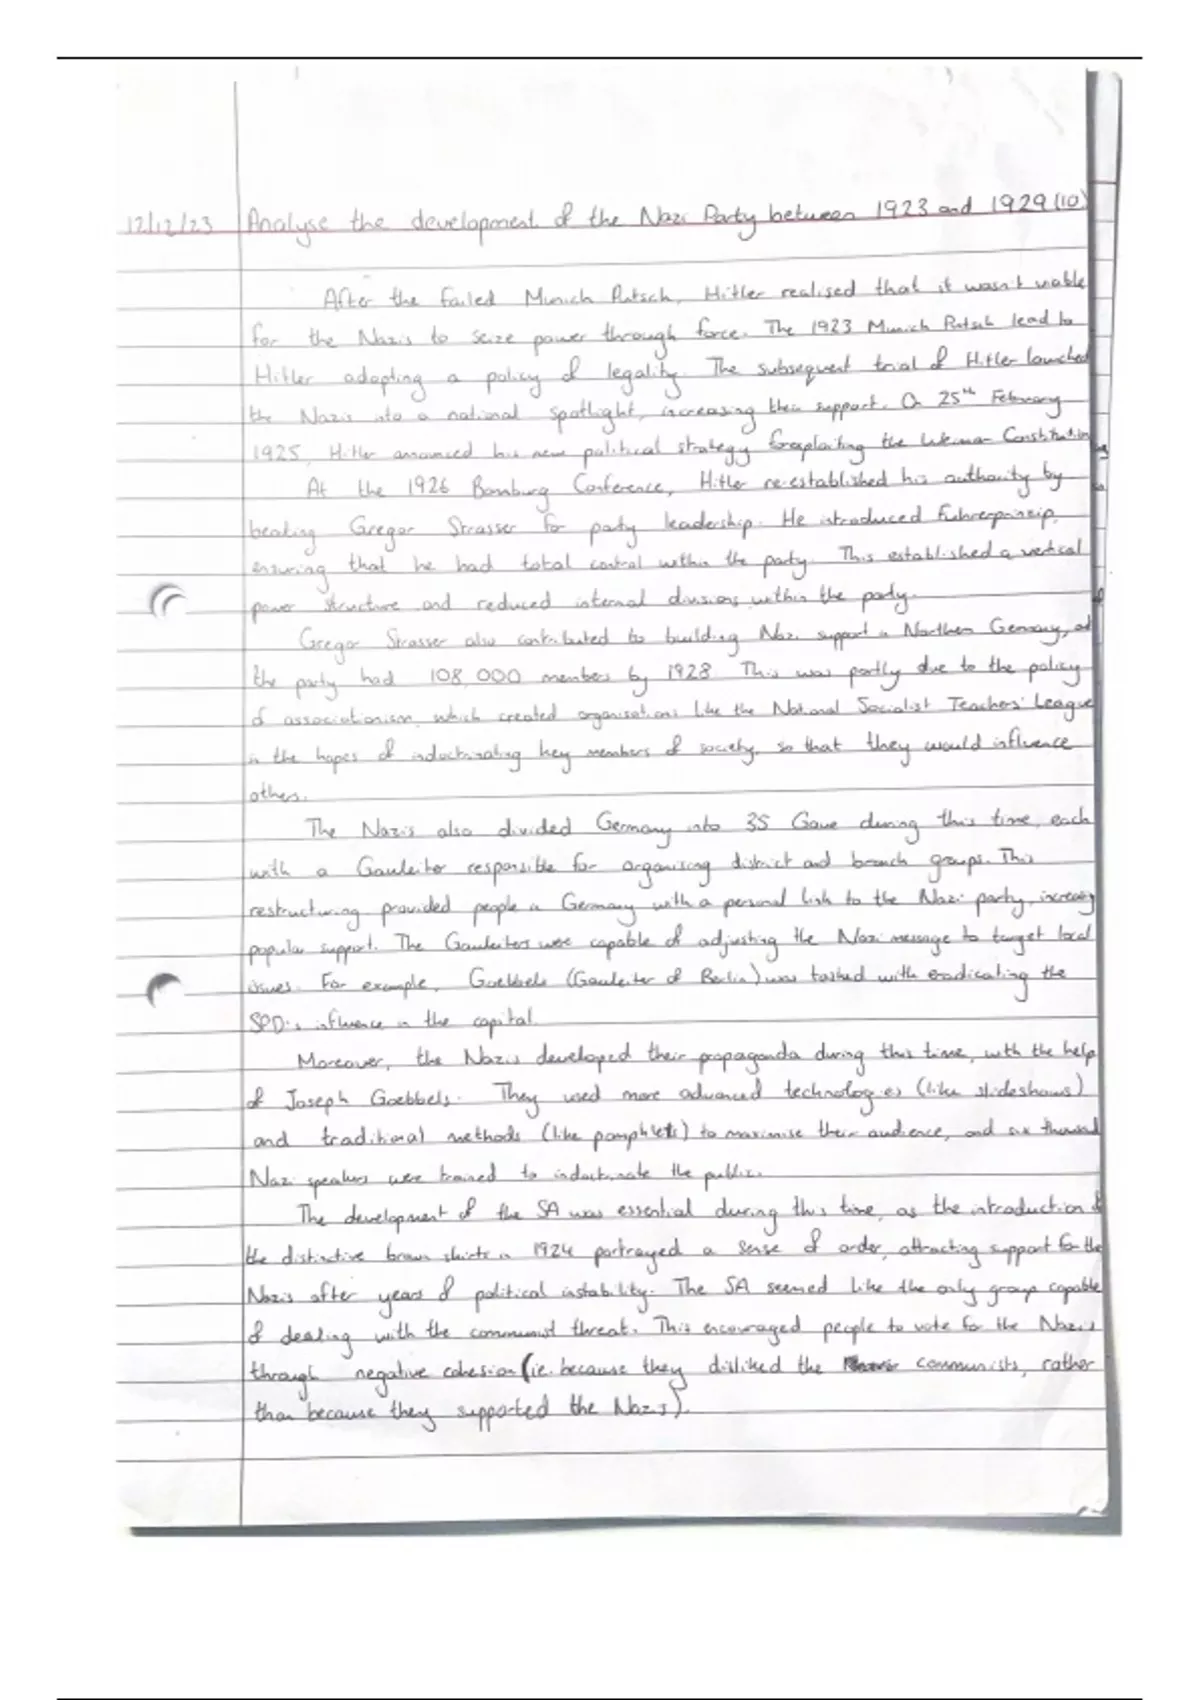 12/12/23 Analyse the development of the Nazi Party between 1923 and 1929 (10)
After the failed Munich Putsch, Hitler realised that it wasn't viable
for the Nazis to seize power through force. The 1923 Munich Putsch lead to
Hitler adopting a policy of legality. The subsequent trial of Hitler launched
the Nazis into a national spotlight, increasing their support. On 25th February
1925, Hitler announced his new political strategy for exploiting the Weimar Constitution
At the 1926 Bamburg Conference, Hitler re-established his authority by
beating Gregor Strasser for party leadership. He introduced Fuhrerprinzip,
ensuring that he had total control within the party. This established a vertical
power structure and reduced internal divisions within the party.
Gregor Strasser also contributed to building Nazi support in Northern Germany, and
the party had 108,000 members by 1928. This was partly due to the policy
of associationism, which created organisations like the National Socialist Teachers' League
in the hopes of indoctrinating key members of society, so that they would influence
others.
The Nazis also divided Germany into 35 Gaue during this time, each
with a Gauleiter responsible for organising district and branch groups. This
restructuring provided people in Germany with a personal link to the Nazi party, increasing
popular support. The Gauleiters were capable of adjusting the Nazi message to target local
issues. For example, Goebbels (Gauleiter of Berlin) was tasked with eradicating the
SPD's influence in the capital.
Moreover, the Nazis developed their propaganda during this time, with the help
of Joseph Goebbels. They used more advanced technologies (like slideshows)
and traditional methods (like pamphlets) to maximise their audience, and six thousand
Nazi speakers were trained to indoctrinate the public.
The development of the SA was essential during this time, as the introduction of
the distinctive brown shirts in 1924 portrayed a sense of order, attracting support for the
Nazis after years of political instability. The SA seemed like the only group capable
of dealing with the communist threat. This encouraged people to vote for the Nazis
through negative cohesion (ie. because they disliked the communists, rather
than because they supported the Nazis).